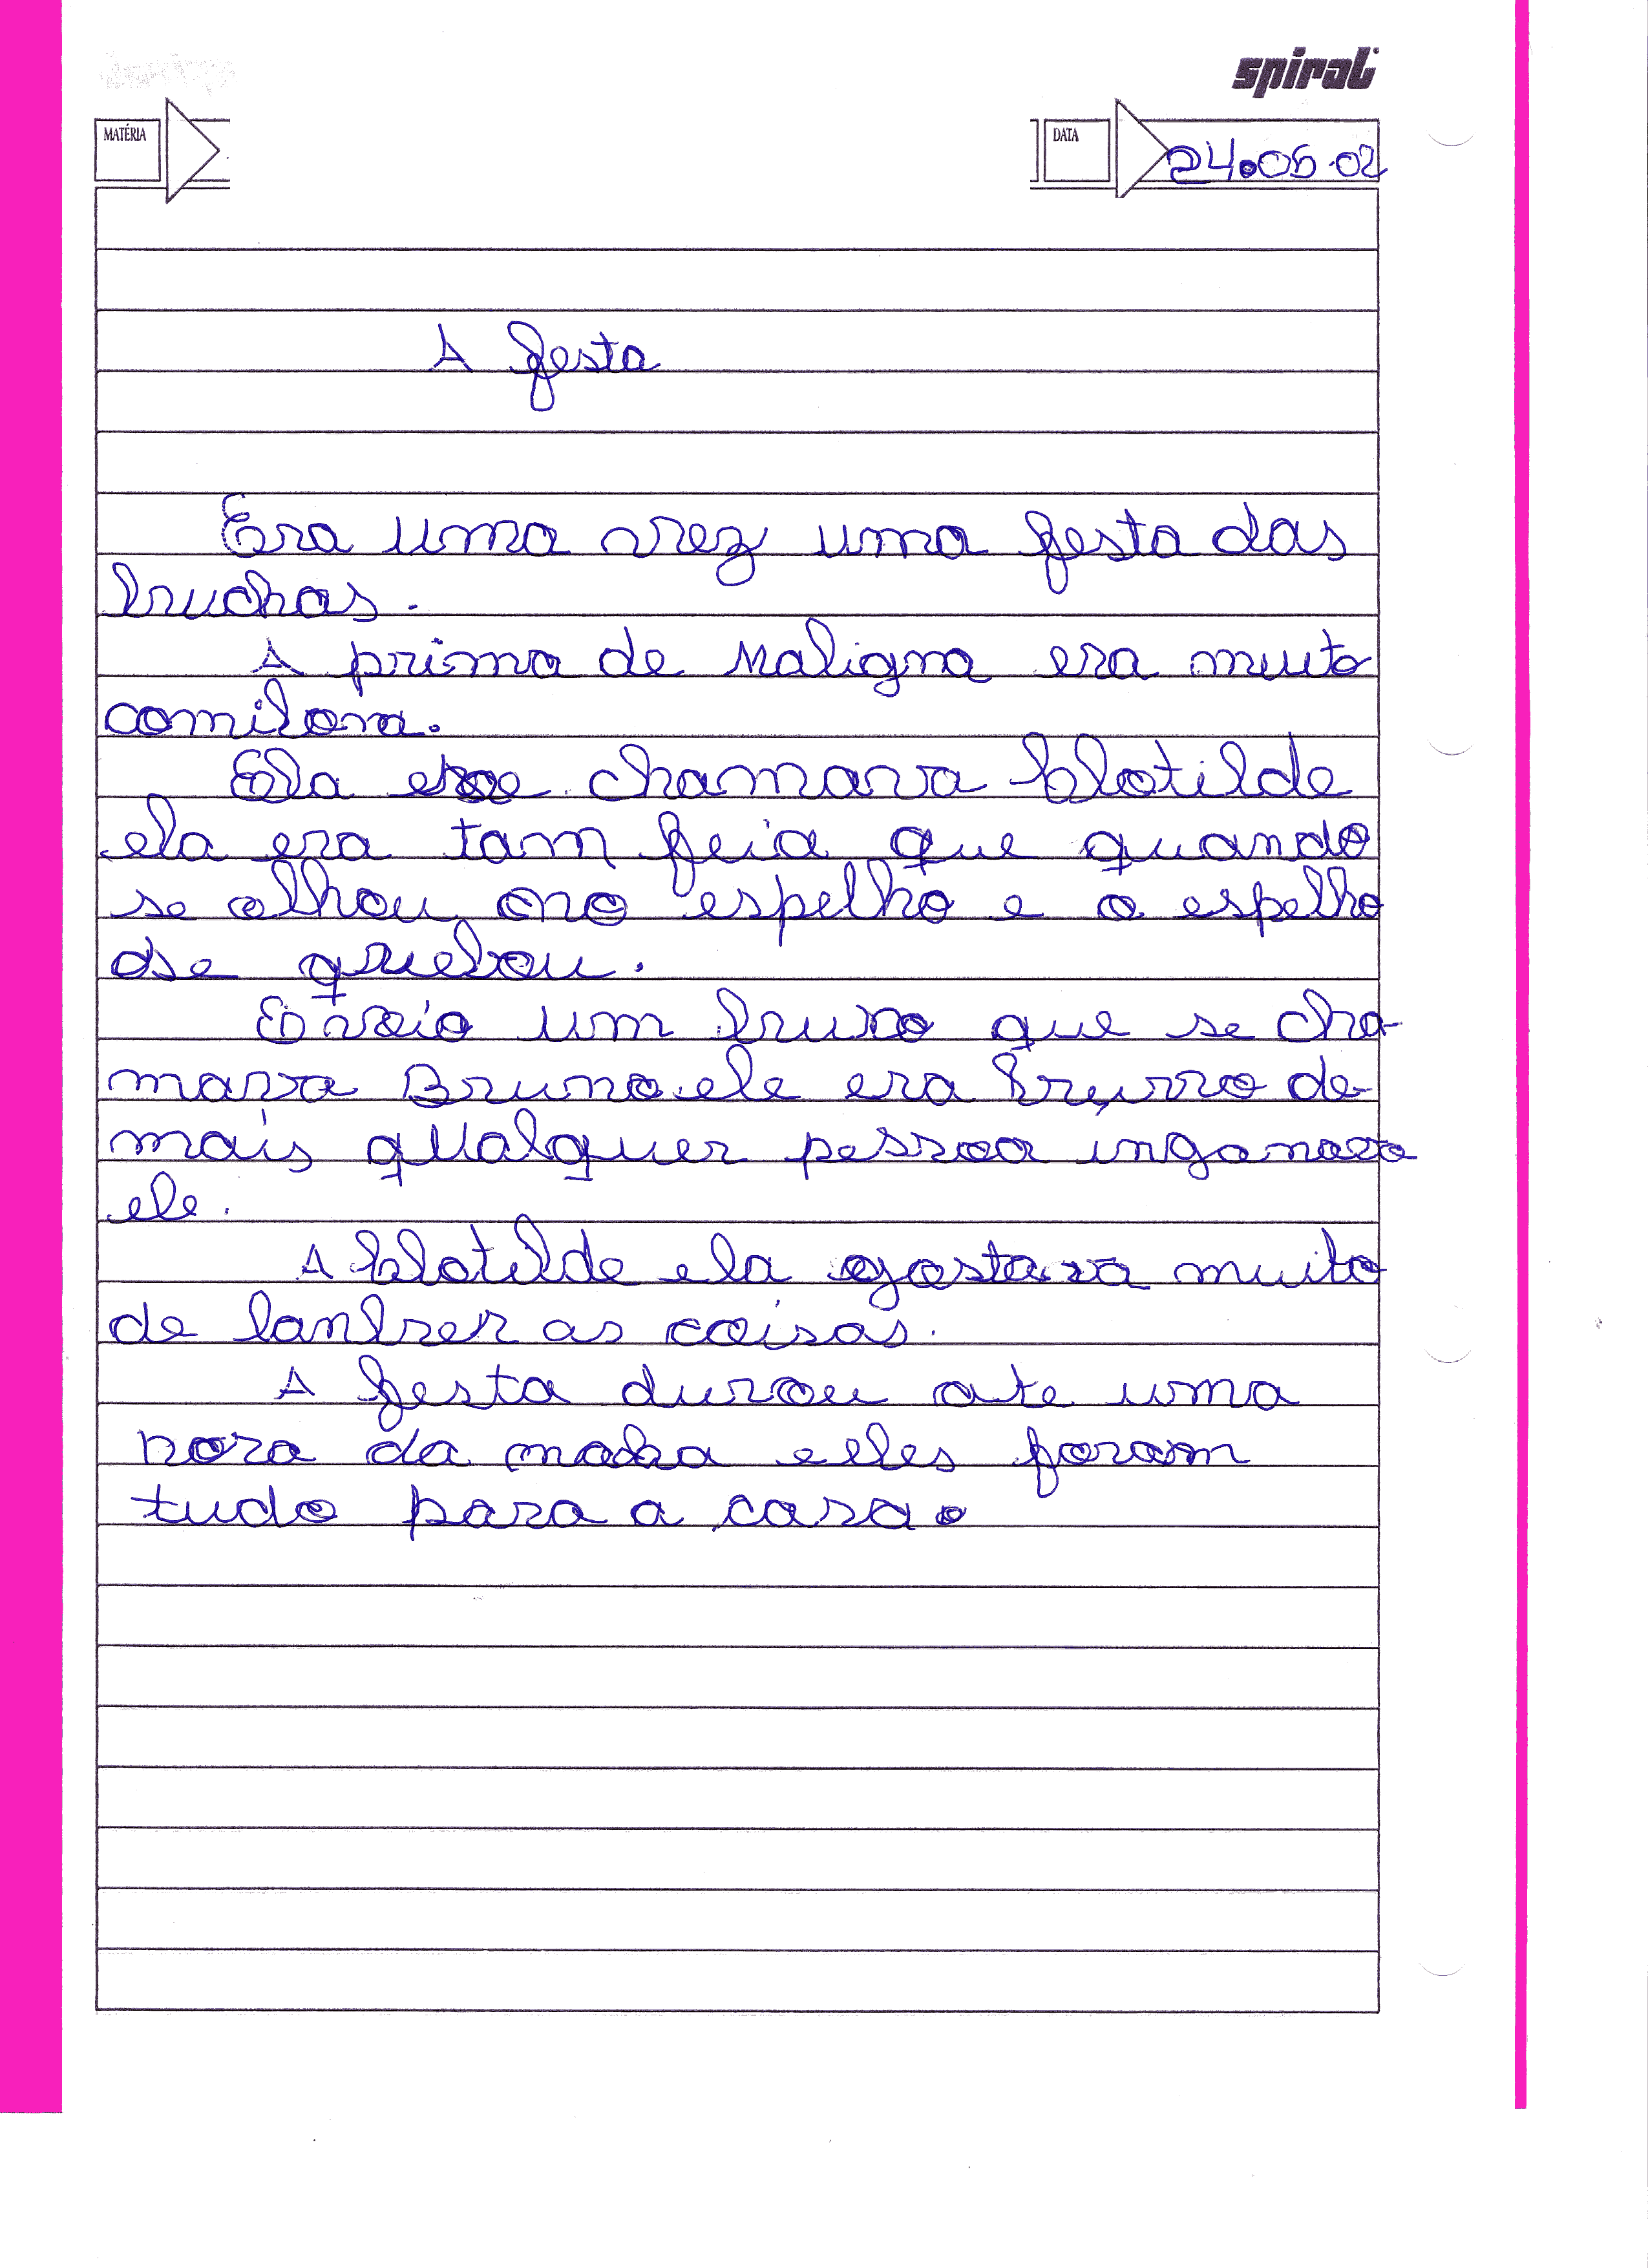 spiral
MATÉRIA
DATA
24.05.02
A festa
Era uma vez uma festa das
bruchas.
A prima de Maligna era muito
comilona.
Ela se chamava Clotilde
ela era tam feia que quando
se olhou no espelho e o espelho
se quebou.
E veio um bruxo que se cha-
mava Bruno ele era burro de-
mais qualquer pessoa inganava
ele.
A Clotilde ela gostava muito
de lanber as coisas.
A festa durou ate uma
hora da eles foram
tudo para a casa.